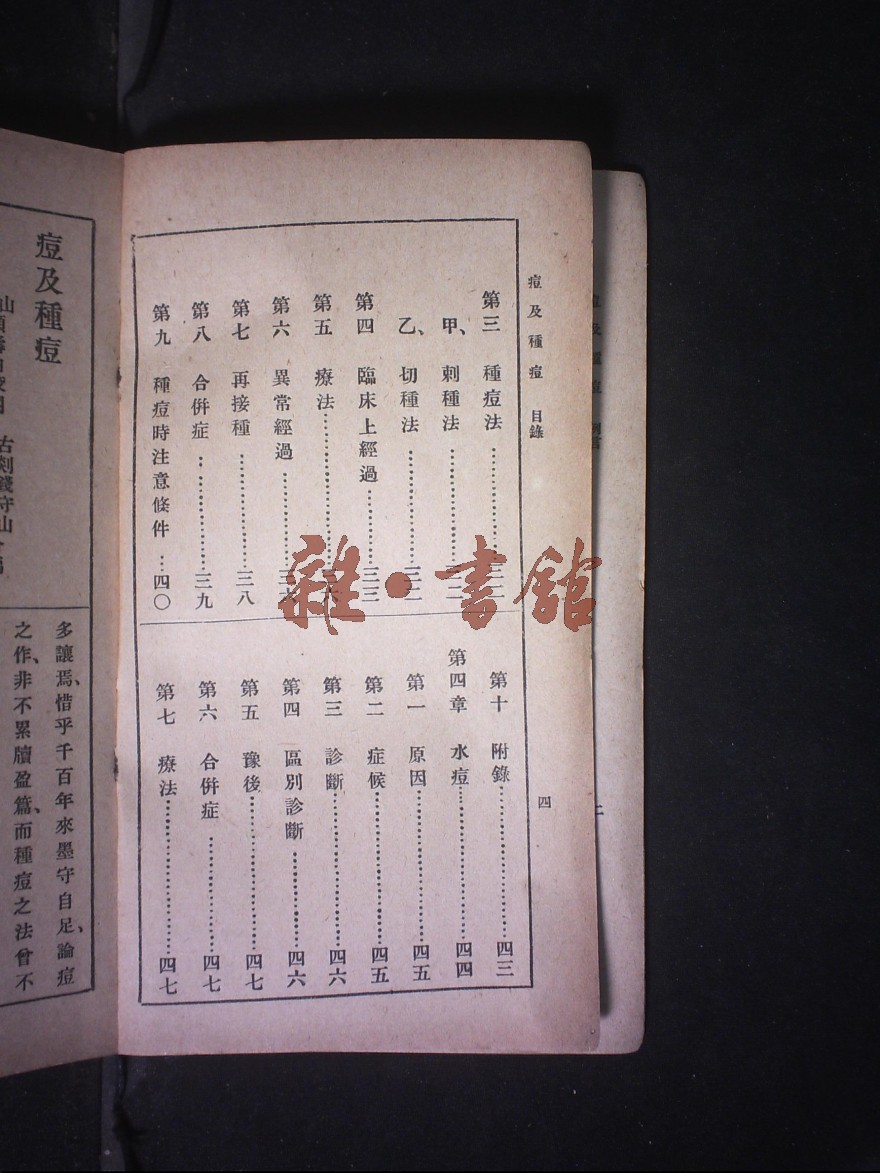 痘及種痘 目錄
四
第三 種痘法
甲、刺種法
乙、切種法
第四 臨床上經過…………三三
第五 療法
第六 異常經過
第七 再接種…………三八
第八 合併症…………三九
第九 種痘時注意條件…四〇
第十 附錄…………四三
第四章 水痘…………四四
第一 原因…………四五
第二 症候…………四五
第三 診斷…………四六
第四 區別診斷…………四六
第五 豫後…………四七
第六 合併症…………四七
第七 療法…………四七
痘及種痘
古剡錢守山
多讓焉、惜乎千百年來墨守自足、論痘
之作、非不累牘盈篇、而種痘之法曾不
雜·書館